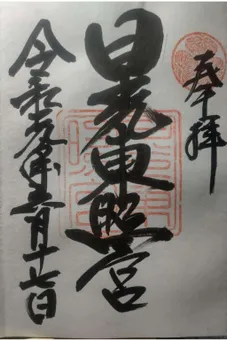 奉拝
日光東照宮
令和元年五月十七日